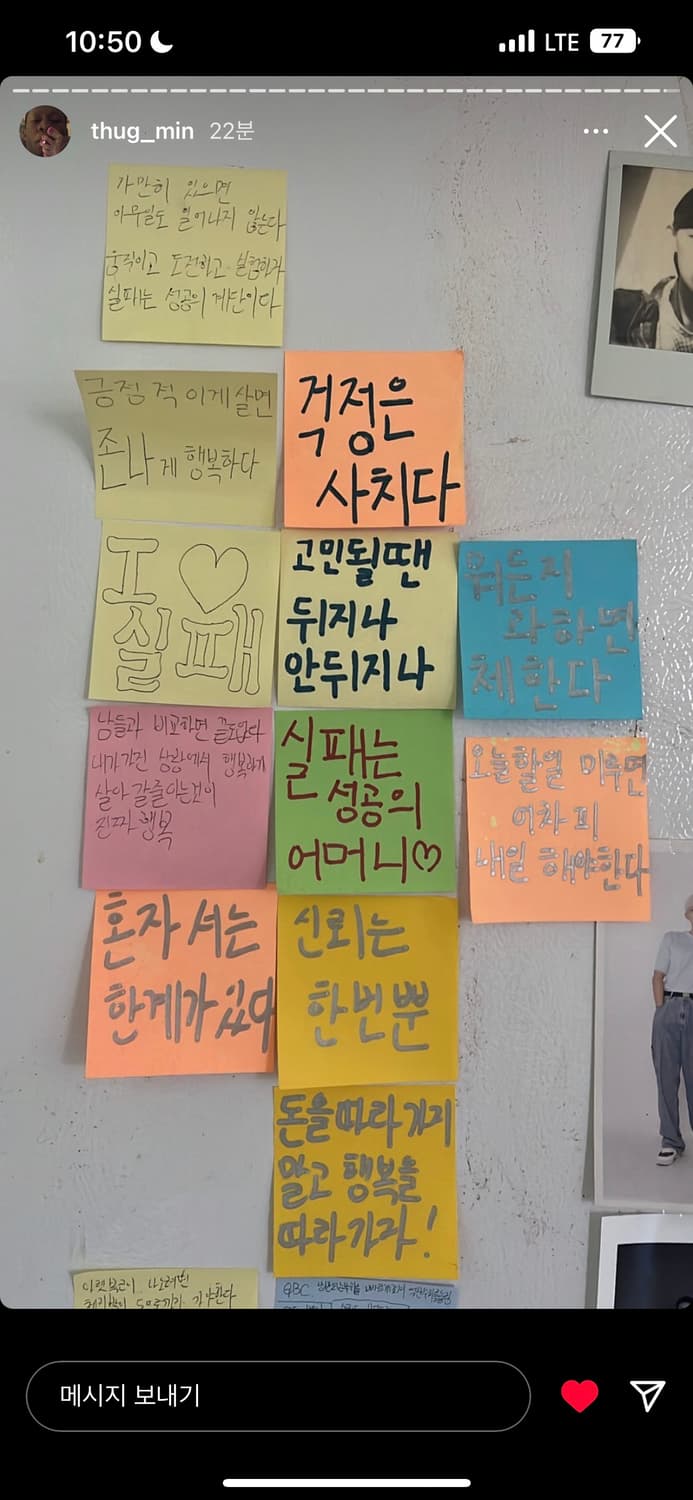 10:50
LTE
77
thug_min 22분
가만히 있으면
아무일도 일어나지 않는다
움직이고 도전하고 실험하자
실패는 성공의 계단이다
긍정적 이게 살면
존나게 행복하다
걱정은
사치다
I ♡
실패
고민될땐
뒤지나
안뒤지나
뭐든지
과하면
체한다
남들과 비교하면 끝도없다
내가가진 상황에서 행복하게
살아갈줄아는것이
진짜 행복
실패는
성공의
어머니♡
오늘할일 미루면
어차피
내일 해야한다
혼자서는
한계가있다
신뢰는
한번뿐
돈을따라가지
말고 행복을
따라가자!
GBC
메시지 보내기